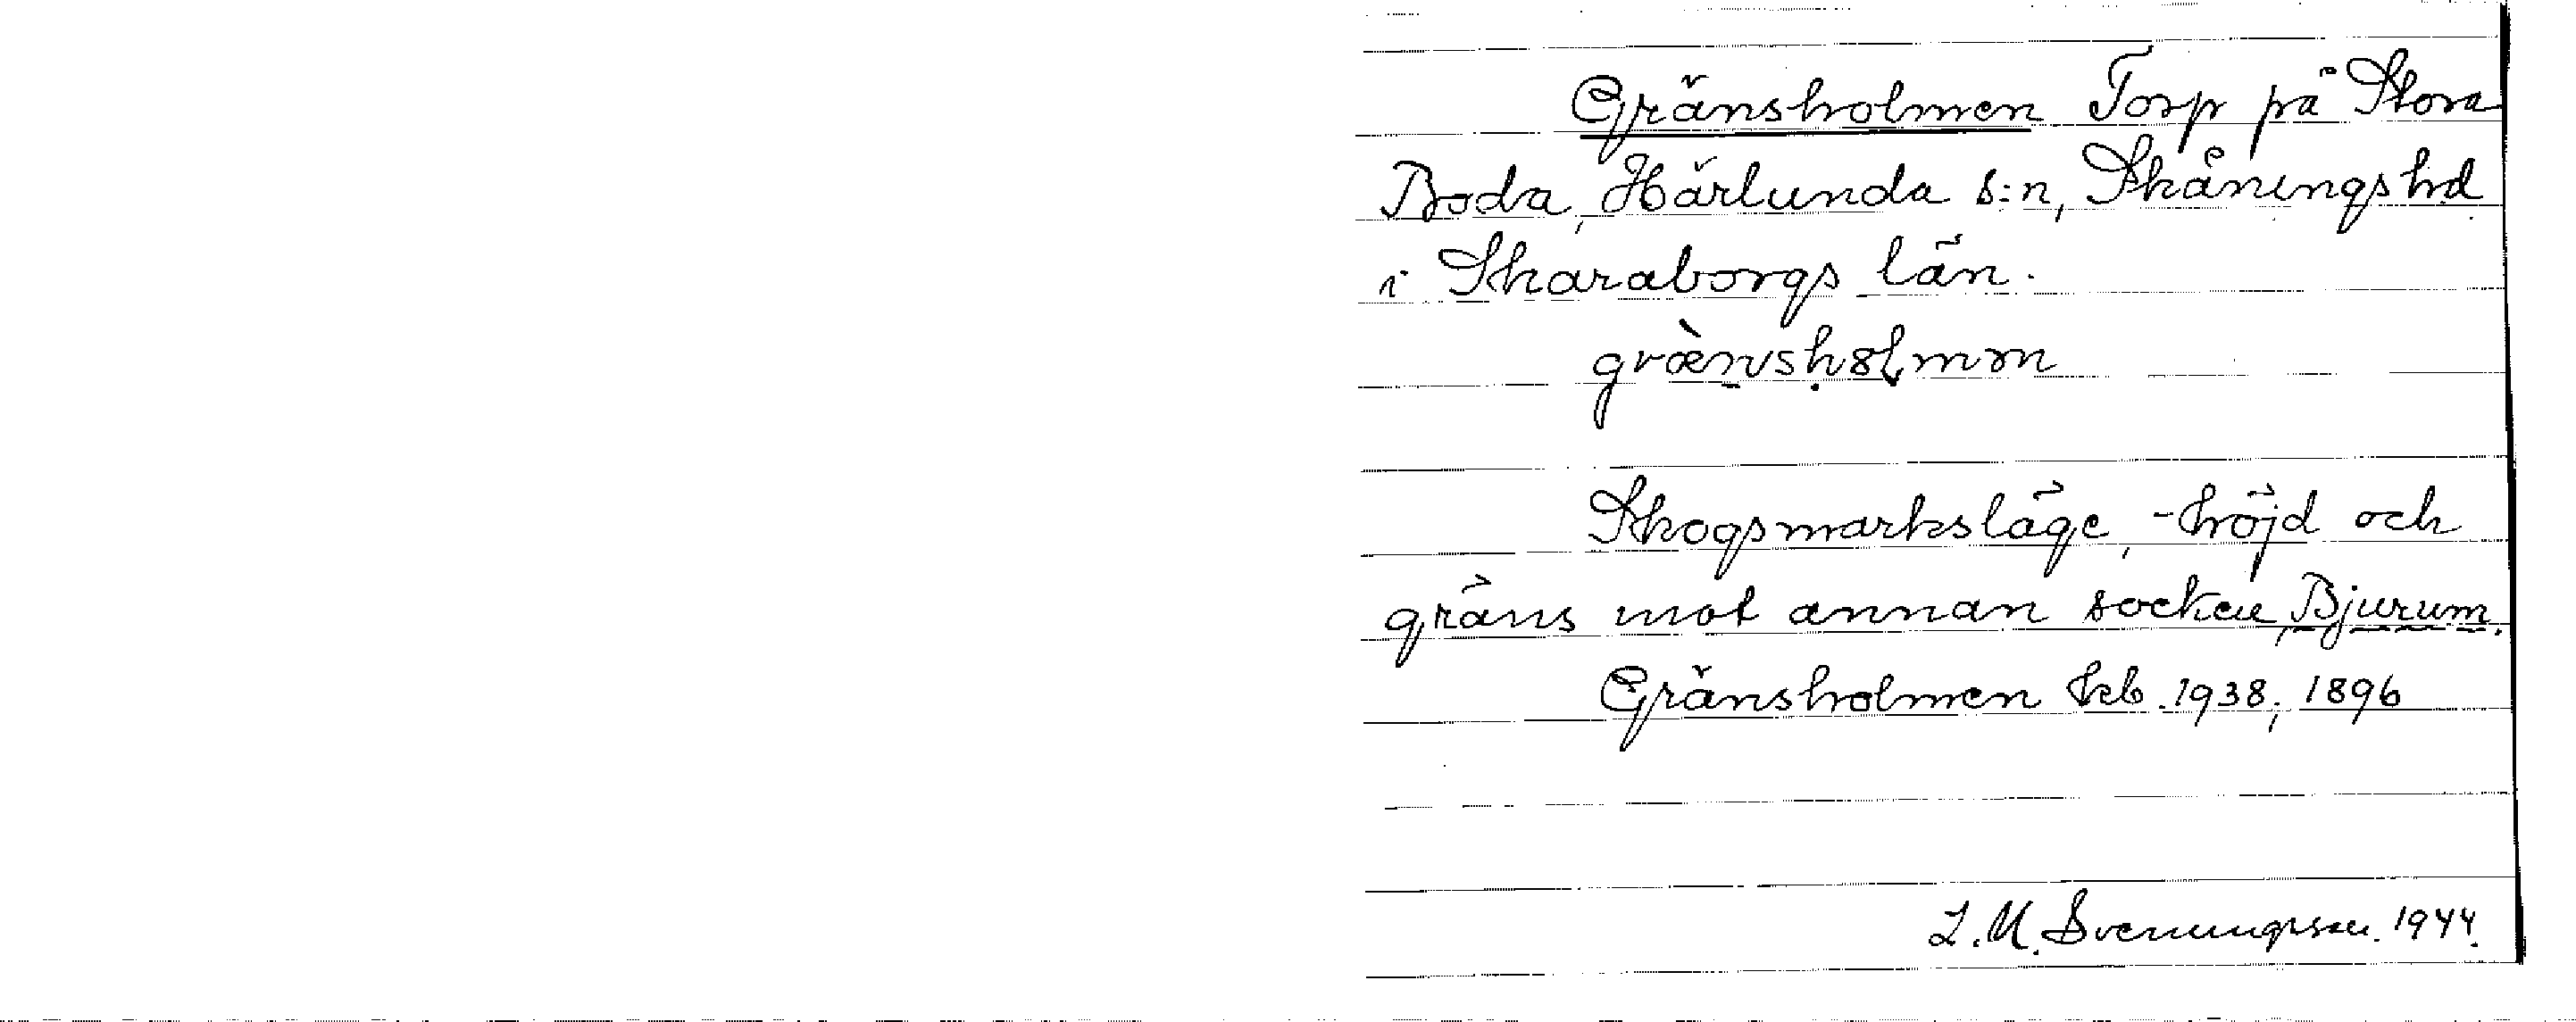 Gränsholmen Torp på Stora
Boda, Härlunda s:n, Skånings hd
i Skaraborgs län.
græ̀nshɵlmən
Skogsmarksläge, -höjd och
gräns mot annan socken, Bjurum.
Gränsholmen kb. 1938; 1896
L. M. Svenungsson. 1944.